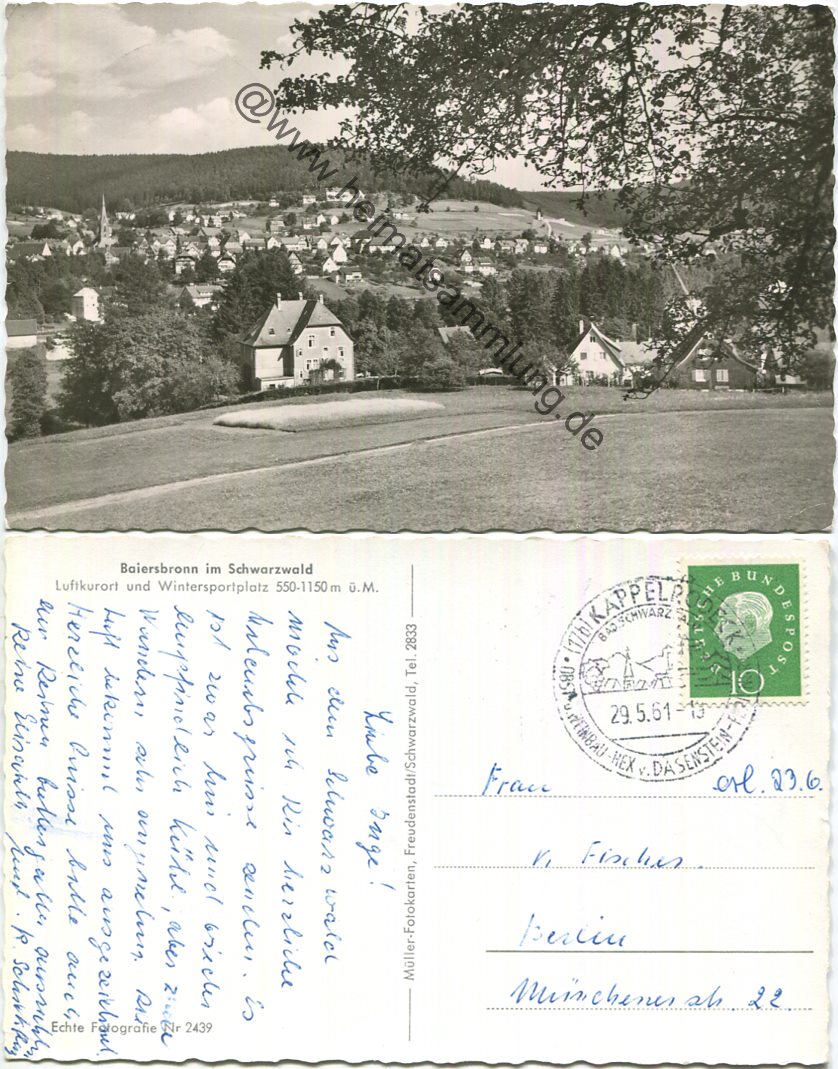 @www.heimatsammlung.de
Baiersbronn im Schwarzwald
Luftkurort und Wintersportplatz 550-1150 m ü.M.
Liebe Inge!
Aus dem Schwarzwald
möchte ich Dir herzliche
Urlaubsgrüsse senden. Es
ist zwar hier und wieder
empfindlich kühl, aber zum
Wandern sehr angenehm. Die
Luft bekommt uns ausgezeichnet.
Herzliche Grüsse bitte auch
an Deinen
Deine Elisabeth
Echte Fotografie Nr 2439
Müller-Fotokarten, Freudenstadt/Schwarzwald, Tel. 2833
(17b) KAPPELRODECK
BAD SCHWARZ
29.5.61-15
OBST u. WEINBAU-HEX v. DASENSTEIN-
DEUTSCHE BUNDESPOST
10
Frau
erl. 23.6.
v. Fischer
Berlin
Münchenerstr. 22